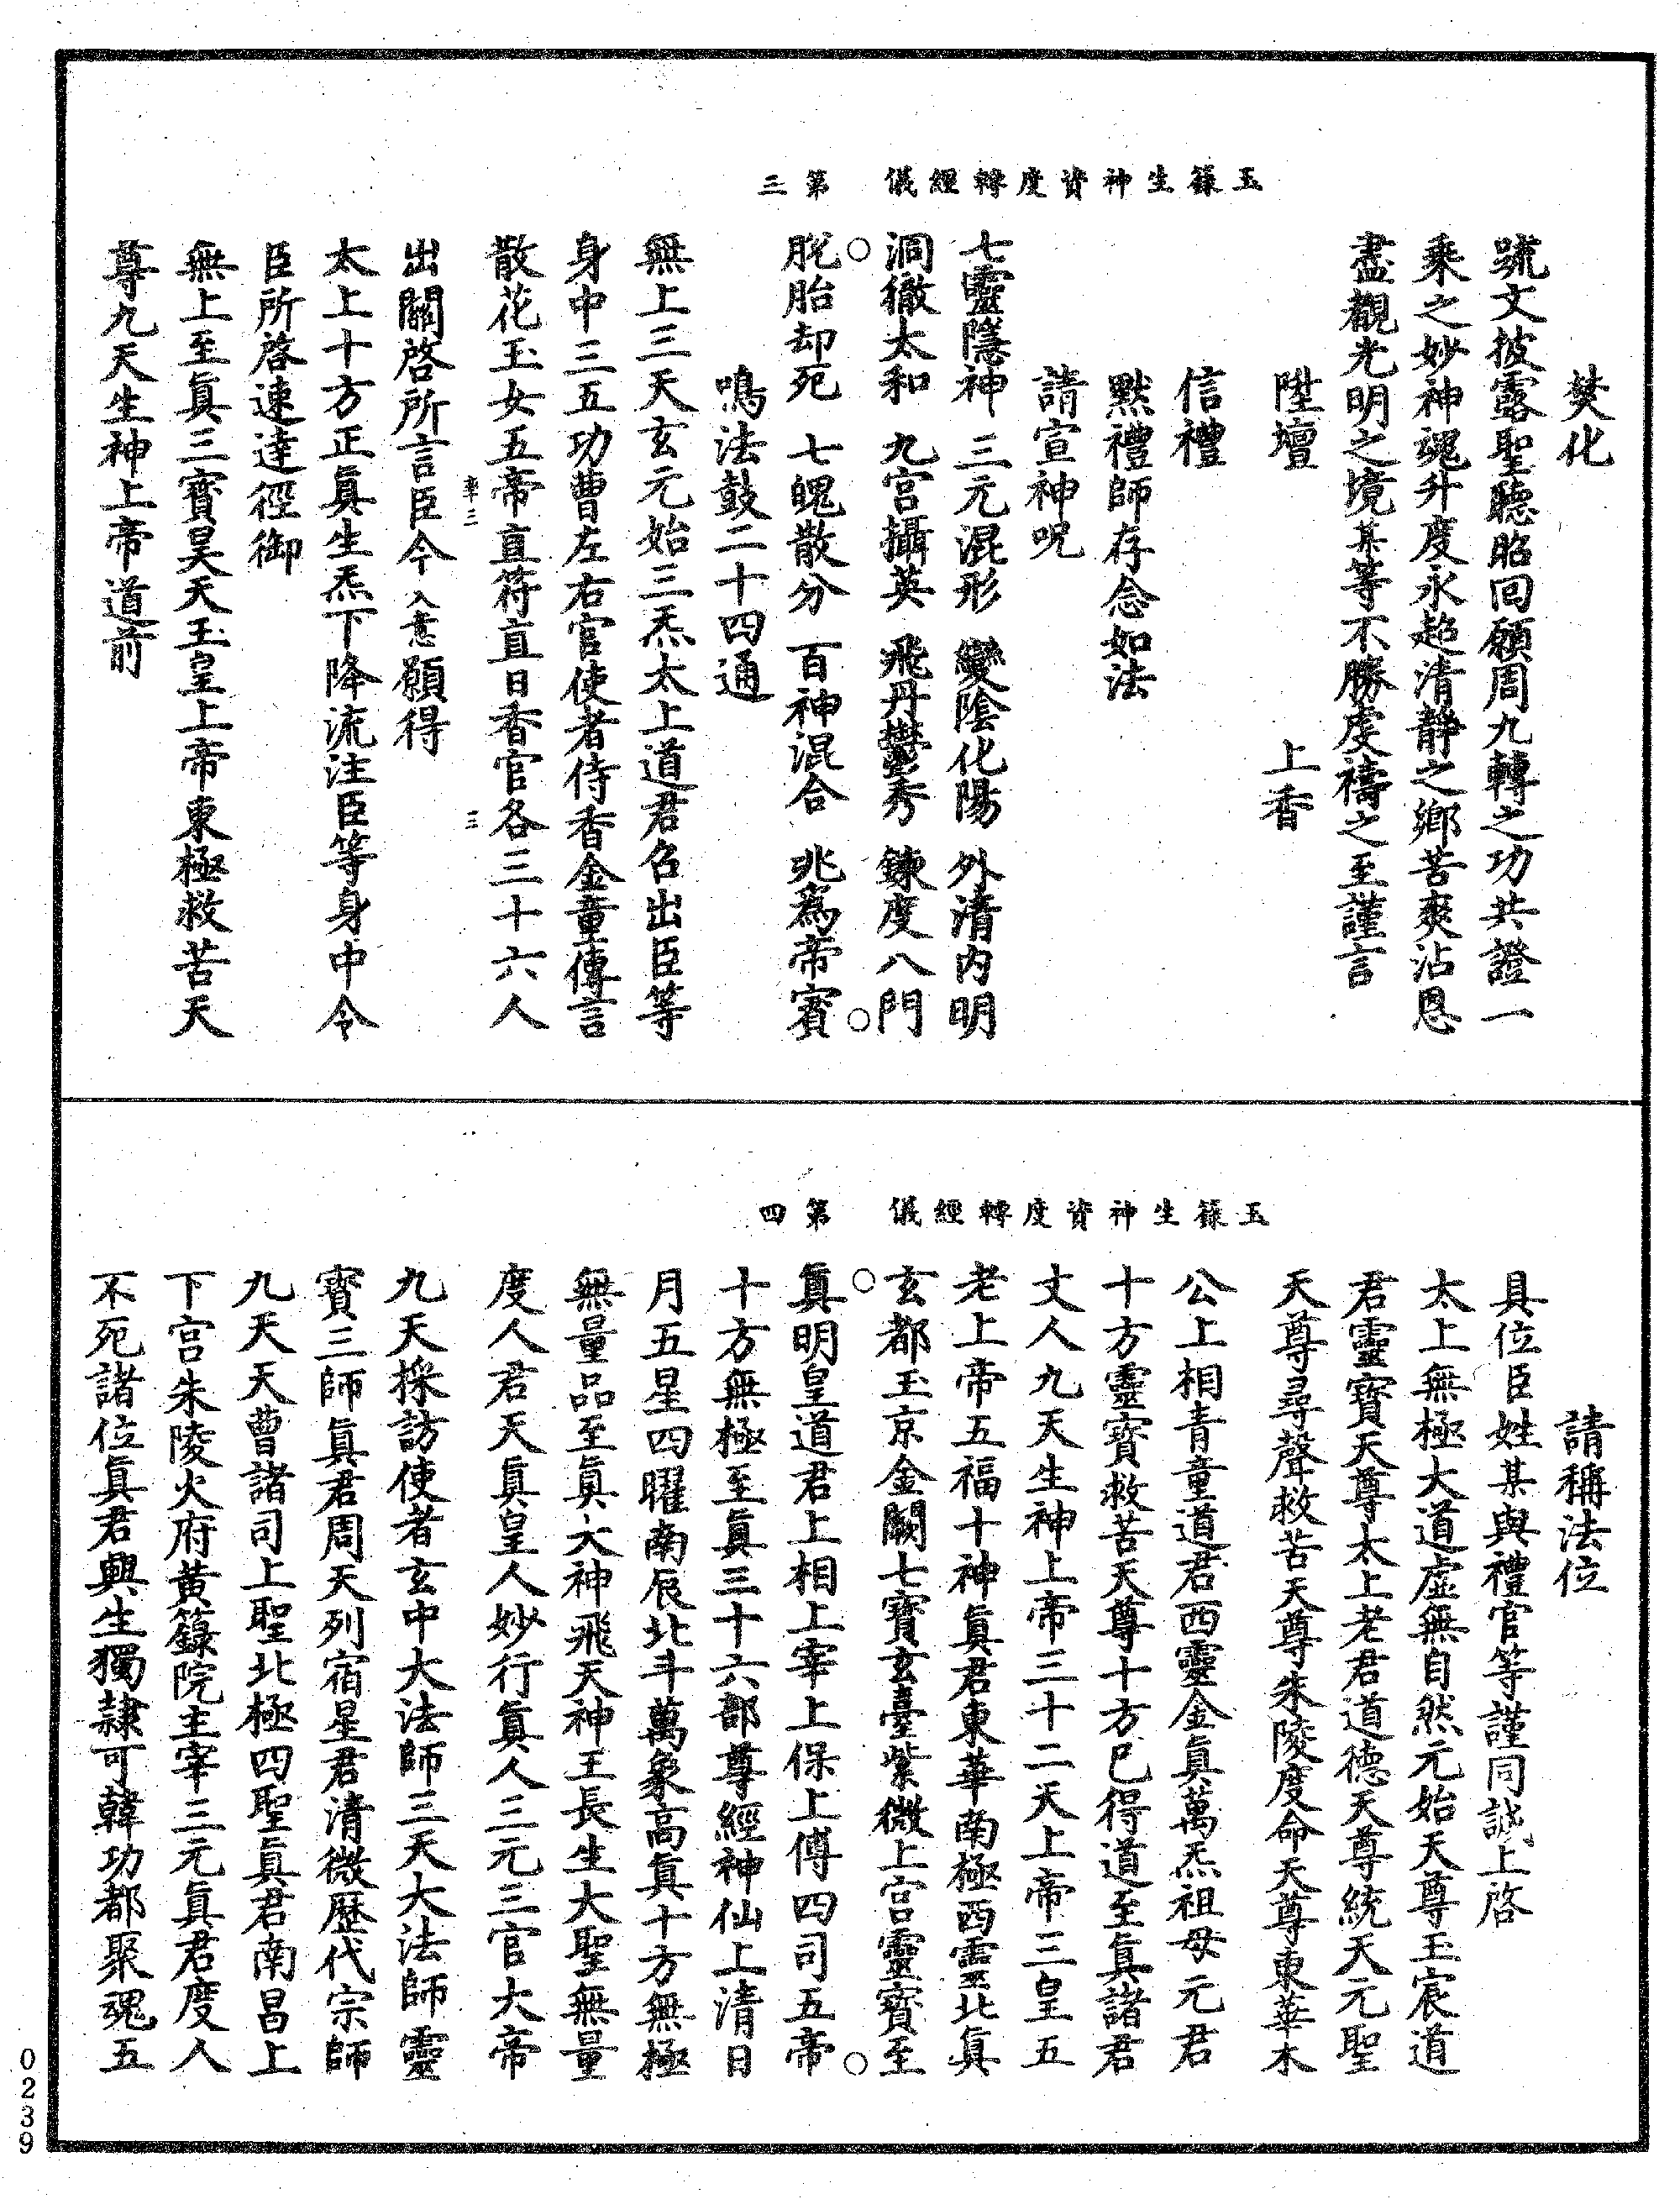 玉籙生神資度轉經儀　第三
焚化
䟽文披露聖聽昭回願周九轉之功共證一
乘之妙神魂升度永超清靜之鄉苦爽沾恩
盡觀光明之境某等不勝虔禱之至謹言
陞壇　上香
信禮
默禮師存念如法
請宣神呪
七靈隱神　三元混形　變陰化陽　外清內明
洞徹太和　九宮攝英　飛丹鬱秀　鍊度八門
脫胎却死　七魄散分　百神混合　兆爲帝賓
鳴法鼓二十四通
無上三天玄元始三炁太上道君召出臣等
身中三五功曹左右官使者侍香金童傳言
散花玉女五帝直符直日香官各三十六人
出關啓所言臣今入意願得
太上十方正眞生炁下降流注臣等身中令
臣所啓速達徑御
無上至眞三寶昊天玉皇上帝東極救苦天
尊九天生神上帝道前
玉籙生神資度轉經儀　第四
請稱法位
具位臣姓某與禮官等謹同誠上啓
太上無極大道虛無自然元始天尊玉宸道
君靈寶天尊太上老君道德天尊統天元聖
天尊尋聲救苦天尊朱陵度命天尊東華木
公上相青童道君西靈金眞萬炁祖母元君
十方靈寶救苦天尊十方已得道至眞諸君
丈人九天生神上帝三十二天上帝三皇五
老上帝五福十神眞君東華南極西靈北眞
玄都玉京金闕七寶玄臺紫微上宮靈寶至
眞明皇道君上相上宰上保上傅四司五帝
十方無極至眞三十六部尊經神仙上清日
月五星四曜南辰北斗萬象高眞十方無極
無量品至眞大神飛天神王長生大聖無量
度人君天眞皇人妙行眞人三元三官大帝
九天採訪使者玄中大法師三天大法師靈
寶三師眞君周天列宿星君清微歷代宗師
九天天曹諸司上聖北極四聖眞君南昌上
下宮朱陵火府黃籙院主宰三元眞君度人
不死諸位眞君興生獨隷可韓功都聚魂五
0239